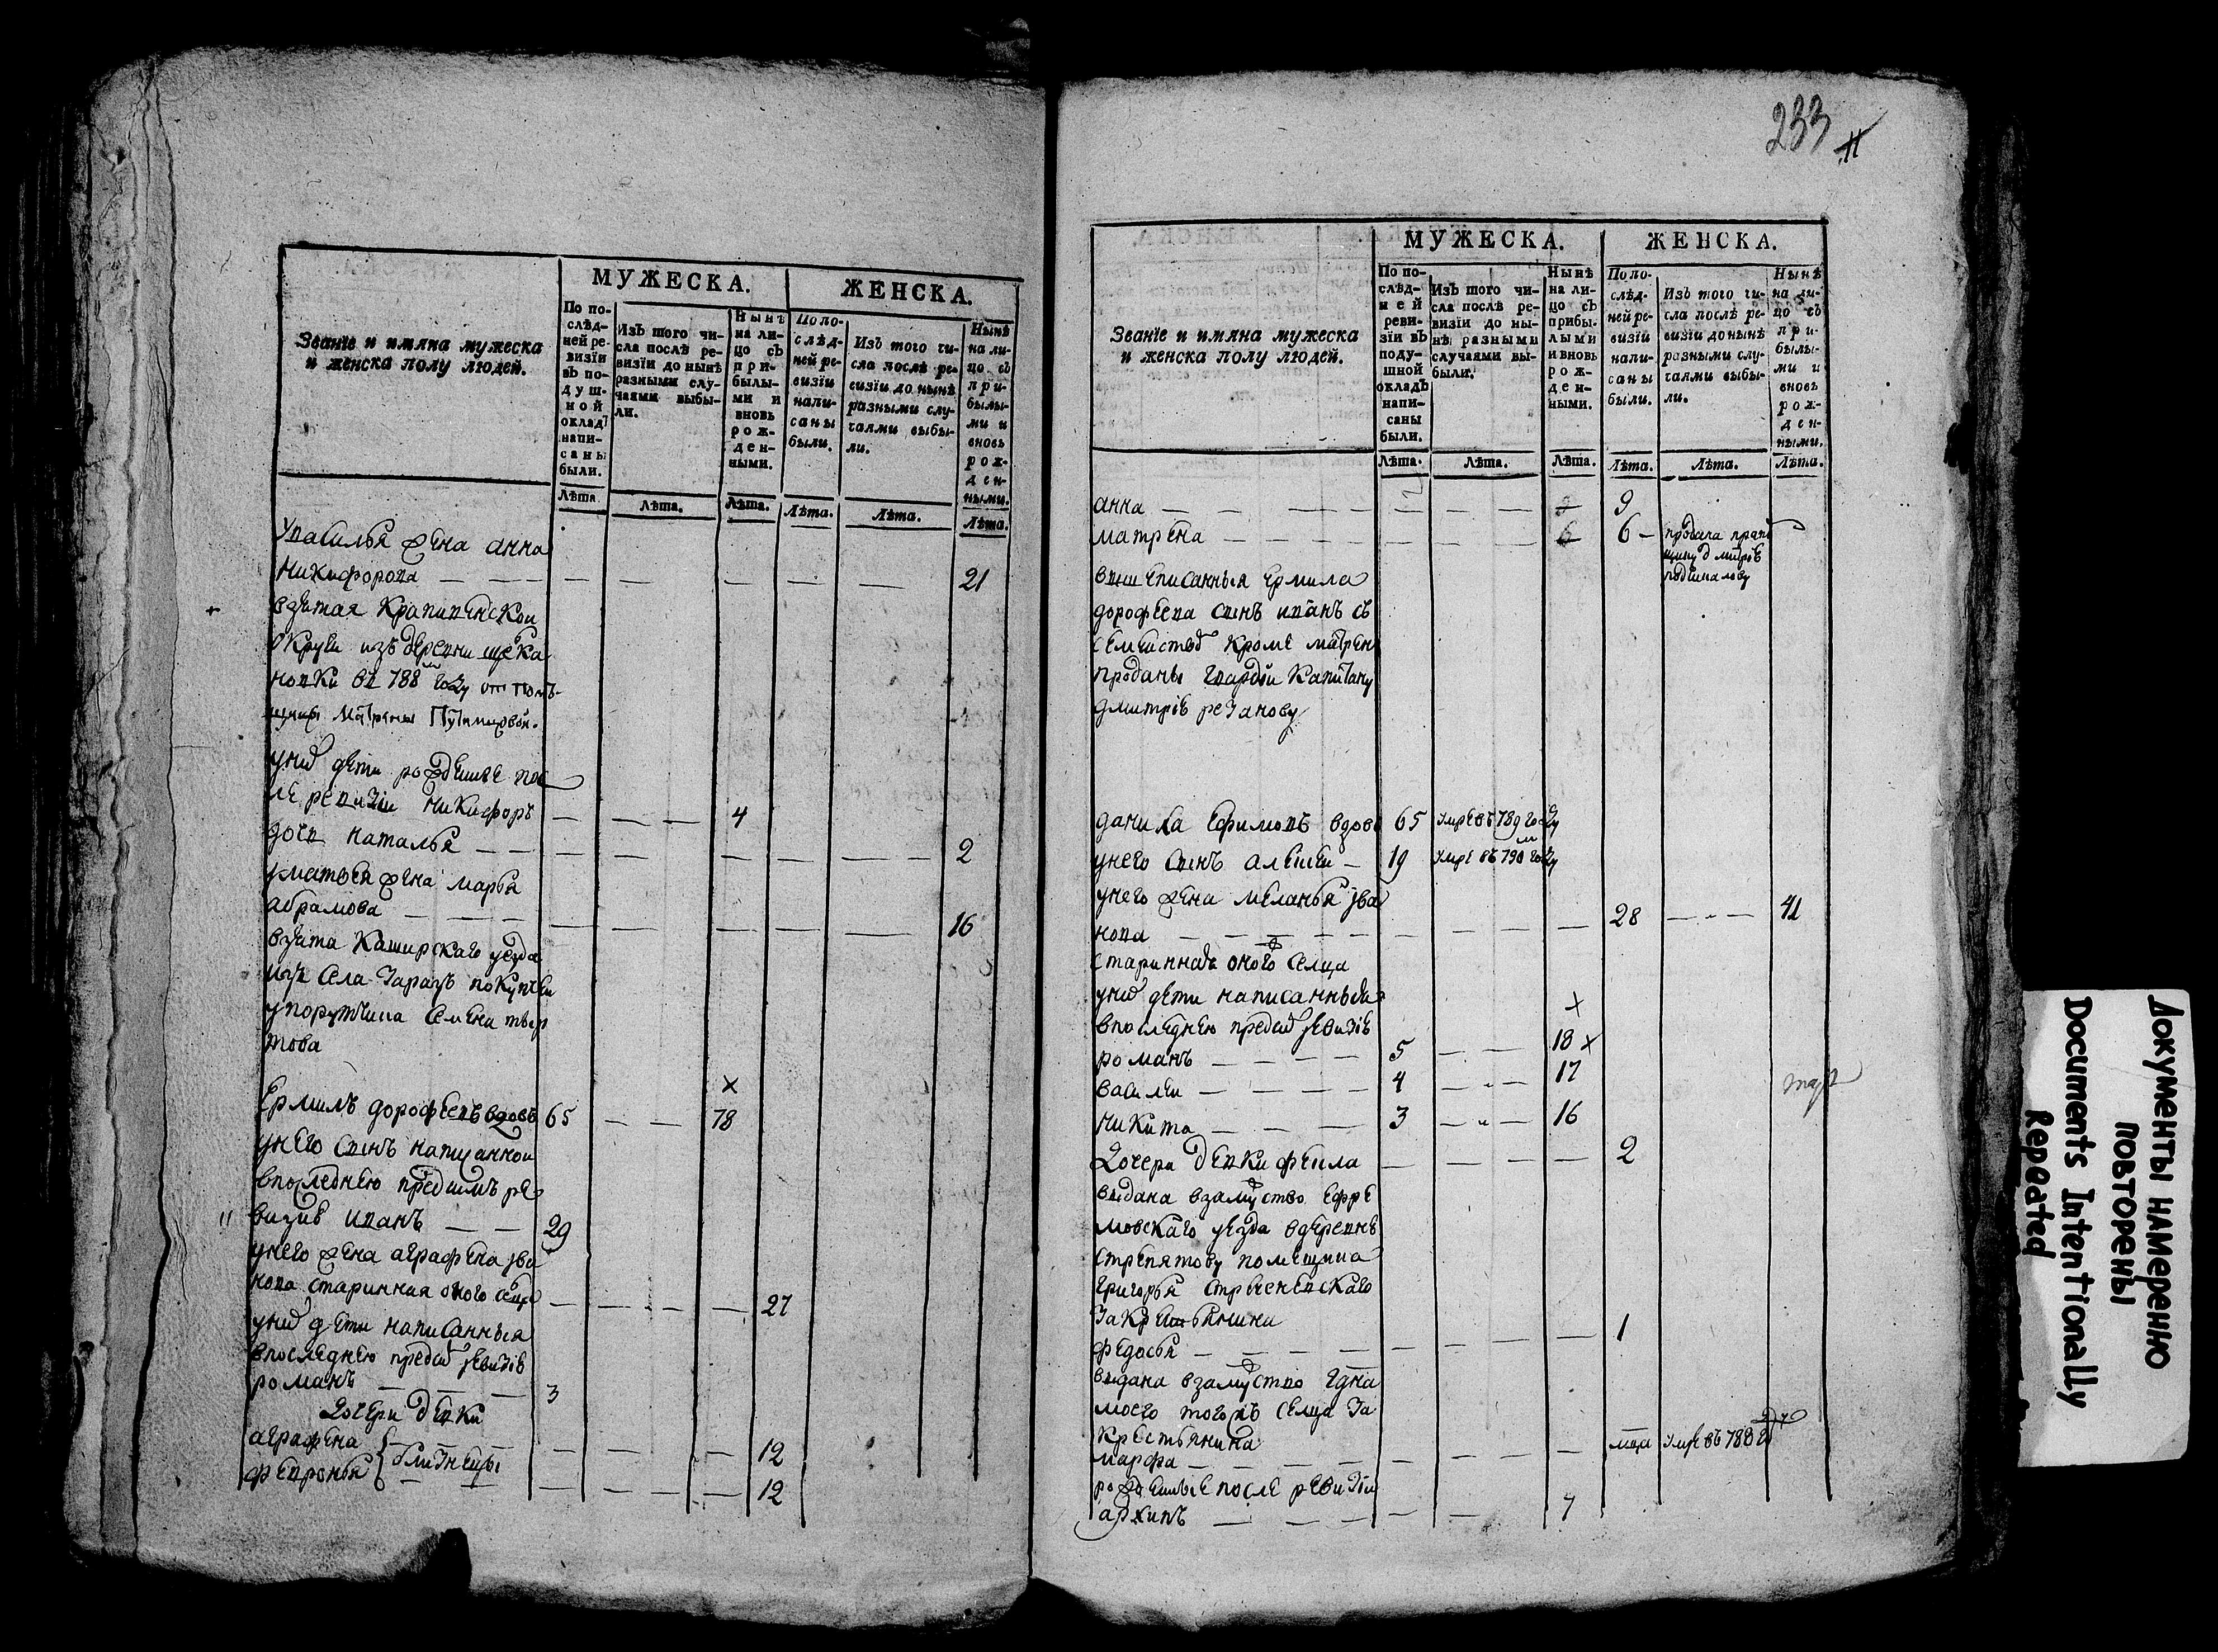 МУЖЕСКА.
ЖЕНСКА.
Званіе и имяна мужеска
и женска полу людей.
По по-
слѣд-
ней ре-
визіи
въ по-
душ-
ной
оклад
напи-
саны
были.
Изъ того чи-
сла послѣ ре-
визіи до нынѣ
разными слу-
чаями выбы-
ли.
Нынѣ
на ли-
цо съ
при-
былы-
ми и
вновь
рож-
ден-
ными.
По по-
слѣд-
ней ре-
визіи
напи-
саны
были.
Изъ того чи-
сла послѣ ре-
визіи до нынѣ
разными слу-
чаями выбы-
ли.
Нынѣ
на ли-
цо съ
при-
былы-
ми и
вновь
рож-
ден-
ными.
Лѣта. Лѣта. Лѣта. Лѣта. Лѣта. Лѣта.
Увасилья жена анна
никифорова — 21
взятая Крапивенской
округи изъ деревни щека
новки въ 788 году отъ помѣ-
щицы Матрены
унихъ дети рожденые пос
ле ревизіи никифоръ — 4
дочь наталья — 2
уматвея жена марья
абрамова — 16
взята Каширскаго уезда
изъ села покупкеи
упорутчика семена
това
х
Ермилъ дорофеевъ вдовъ 65 — 78
унего сынъ написанной
впоследнею предъ симъ ре
визіе иванъ — 29
унего жена аграфена ива
нова старинная оного селца — 27
унихъ дети написанныя
впоследнею предъ симъ ревизіе
романъ — 3
дочери девки
аграфена — близнецы — 12
февронья — 12
233
МУЖЕСКА.
ЖЕНСКА.
Званіе и имяна мужеска
и женска полу людей.
По по-
слѣд-
ней
реви-
зіи въ
поду-
шной
окладъ
напи-
саны
были.
Изъ того чи-
сла послѣ ре-
визіи до ны-
нѣ разными
случаями вы-
были.
Нынѣ
на ли-
цо съ
прибы-
лыми
и вновь
рож-
ден-
ными.
По по-
слѣд-
ней ре-
визіи
напи-
саны
были.
Изъ того чи-
сла послѣ ре-
визіи до нынѣ
разными слу-
чаями выбы-
ли.
Нынѣ
на ли-
цо съ
при-
былы-
ми и
вновь
рож-
ден-
ными.
Лѣта. Лѣта. Лѣта. Лѣта. Лѣта. Лѣта.
анна — 9
матрена — 6 — продана прапор
щику дмитрію
вышеписанныя Ермила
дорофеева сынъ иванъ съ
семействомъ кроме матрены
проданы гвардіи капитану
дмитрію резанову
данила Ефимовъ вдовъ 65 умре въ 789 году
унего сынъ алексеи — 19 умре въ 790 году
унего жена меланья ива
нова — 28 — 41
старинная оного селца
унихъ дети написанныя
х
впоследнею предъ симъ ревизіе
романъ — 5 — 18 х
василеи — 4 — 17
никита — 3 — 16
дочери девки фекла — 2
выдана взамужство Ефре
мовскаго уезда вдеревню
помещика
григорья
за крестьянина
федосья — 1
выдана взамужство Една
моего тогожъ селца за
крестьянина
марфа — мца умре въ 788 году
рожденые после ревизіи
архипъ — 7
Документы намеренно
повторены
Documents Intentionally
Repeated